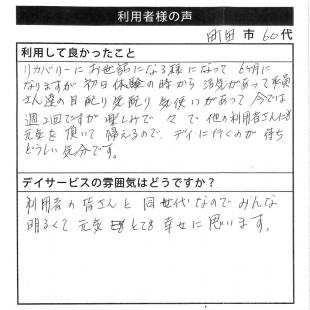 利用者様の声
町田市60代
利用して良かったこと
リカバリーにお世話になる様になって6ヶ月に
なりますが初日体験の時から活気があって職員
さん達の目配り気配り気使いがあって今では
週2回ですが楽しみで々で他の利用者さんにも
元気を頂いて帰えるので、デイに行くのが待ち
どうしい気分です。
デイサービスの雰囲気はどうですか？
利用者の皆さんと同世代なのでみんな
明るくて元気とても幸せに思います。